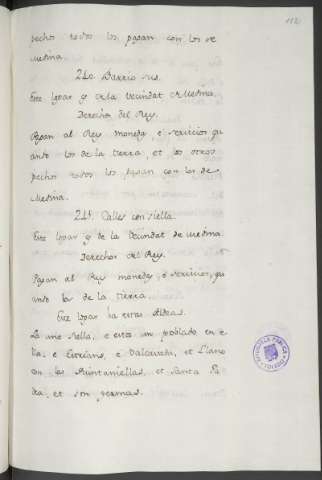 112
pechos todos los pagan con los de
Medina.
240. Barrio sus.
Este logar es de la Vecindat de Medina.
Derechos del Rey.
Pagan al Rey moneda, e servicios qu
ando los de la tierra, et los otros
pechos todos los pagan con los de
Medina.
241. Valles con siella
Este logar es de la Vecindat de Medina
Derechos del Rey.
Pagan al Rey moneda, e servicios, qu
ando los de la tierra
Este logar ha estas Aldeas.
La une siella, e esta un poblado en e
lla, e e Valcavadi, et Llano
con las Quintaniellas, et Santa
et son yermas.
BIBLIOTECA PUBLICA
TOLEDO